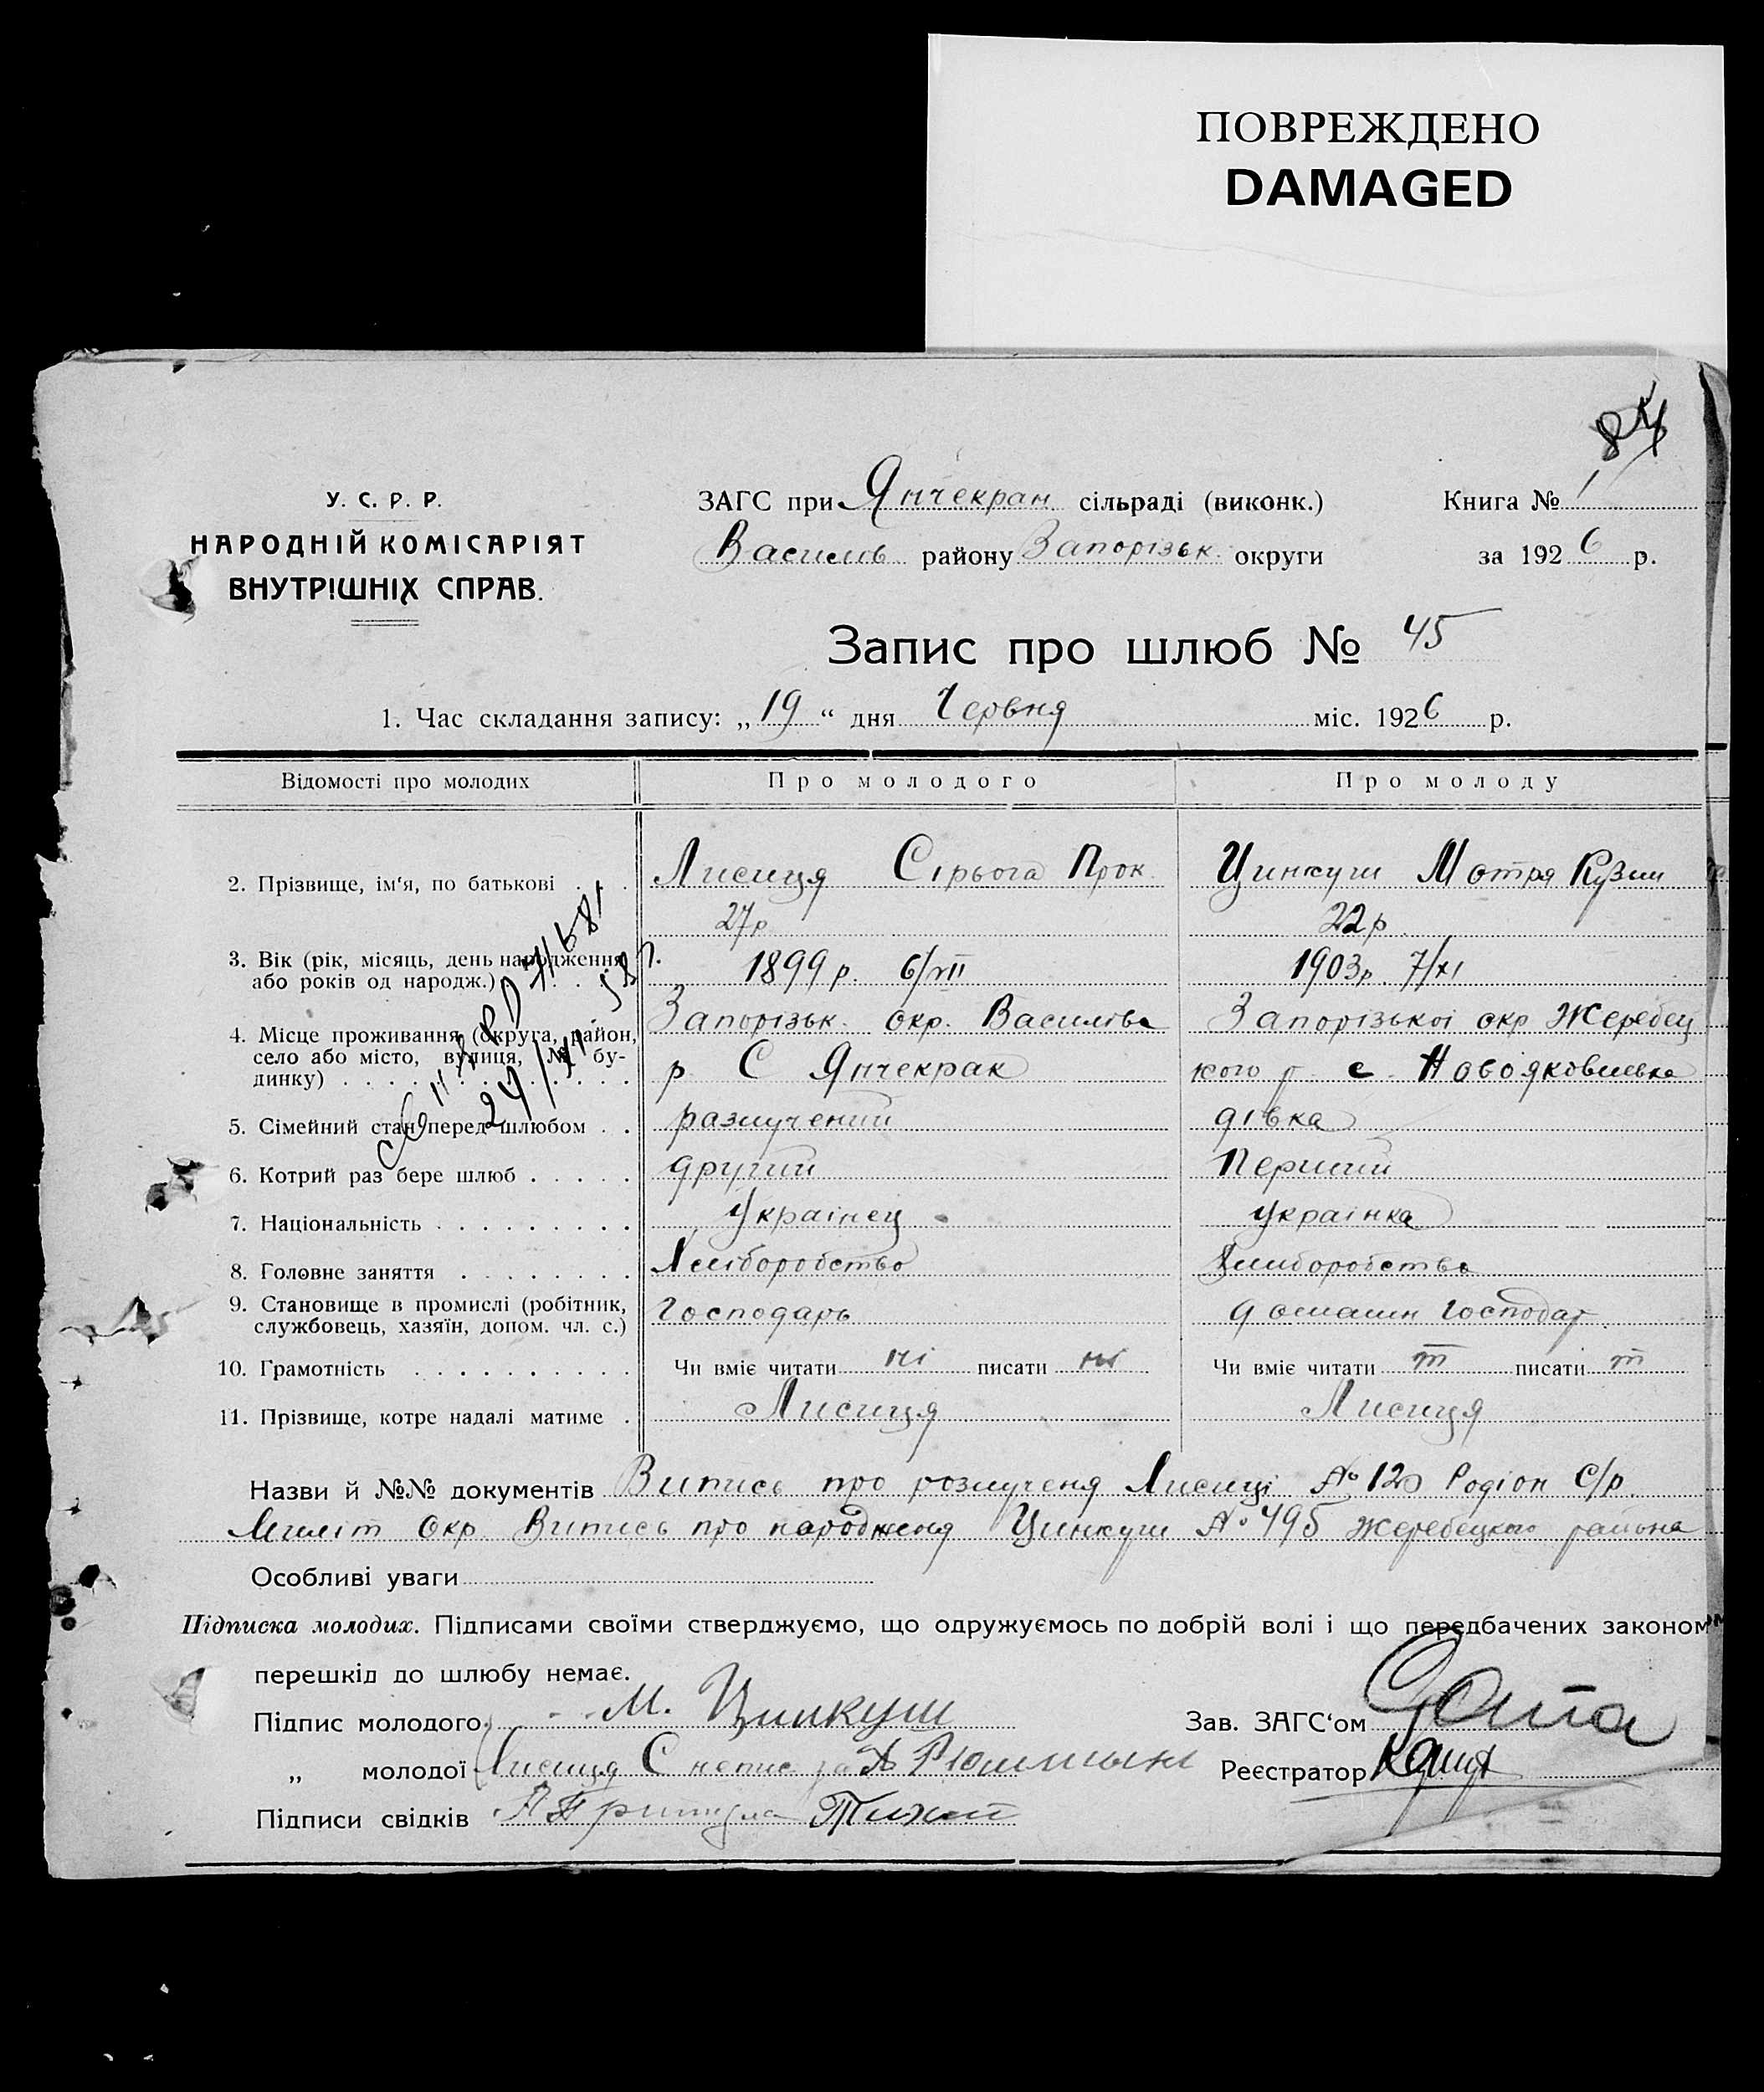 ПОВРЕЖДЕНО
DAMAGED
84
У. С. Р. Р.
НАРОДНІЙ КОМІСАРІЯТ
ВНУТРІШНІХ СПРАВ.
ЗАГС при Янчекран сільраді (виконк.)
Василів району Запорізьк. округи
Книга № 1
за 1926 р.
Запис про шлюб № 45
1. Час складання запису: „19“ дня Червня міс. 1926 р.
Відомості про молодих Про молодого Про молоду
2. Прізвище, ім‘я, по батькові . . . Лисиця Сірьога Прок. Цинкуш Мотря Кузьм
27р 22р.
3. Вік (рік, місяць, день народження, або років од народж.) . . . 1899 р. 6/VII 1903р. 7/XI
4. Місце проживання (округа, район, село або місто, вулиця, № будинку) . . .
Запорізьк. окр. Василівс Запорізькоі окр Жеребец
р С Янчекрак кого р с. Новояковлівка
5. Сімейний стан перед шлюбом . . разлучений дівка
6. Котрий раз бере шлюб . . . . . другий Перший
7. Національність . . . . . . . . . Украінец украінка
8. Головне заняття . . . . . . . . Хліборобство Хлиборобство
9. Становище в промислі (робітник, службовець, хазяїн, допом. чл. с.) Господарь домашн Господар.
10. Грамотність . . . . . . . . . . Чи вміє читати ні писати ні Чи вміє читати писати
11. Прізвище, котре надалі матиме . Лисиця Лисиця
Назви й №№ документів Випись про розлученя Лисиці № 120 Родіон С/р.
Меліт Окр. Випись про народженя Цинкуш № 495 Жеребецкого района
Особливі уваги
Підписка молодих. Підписами своїми стверджуємо, що одружуємось по добрій волі і що передбачених законом
перешкід до шлюбу немає.
Підпис молодого М. Цинкуш
Зав. ЗАГС‘ом
„ молодої Лисиця С непис за
Реєстратор
Підписи свідків